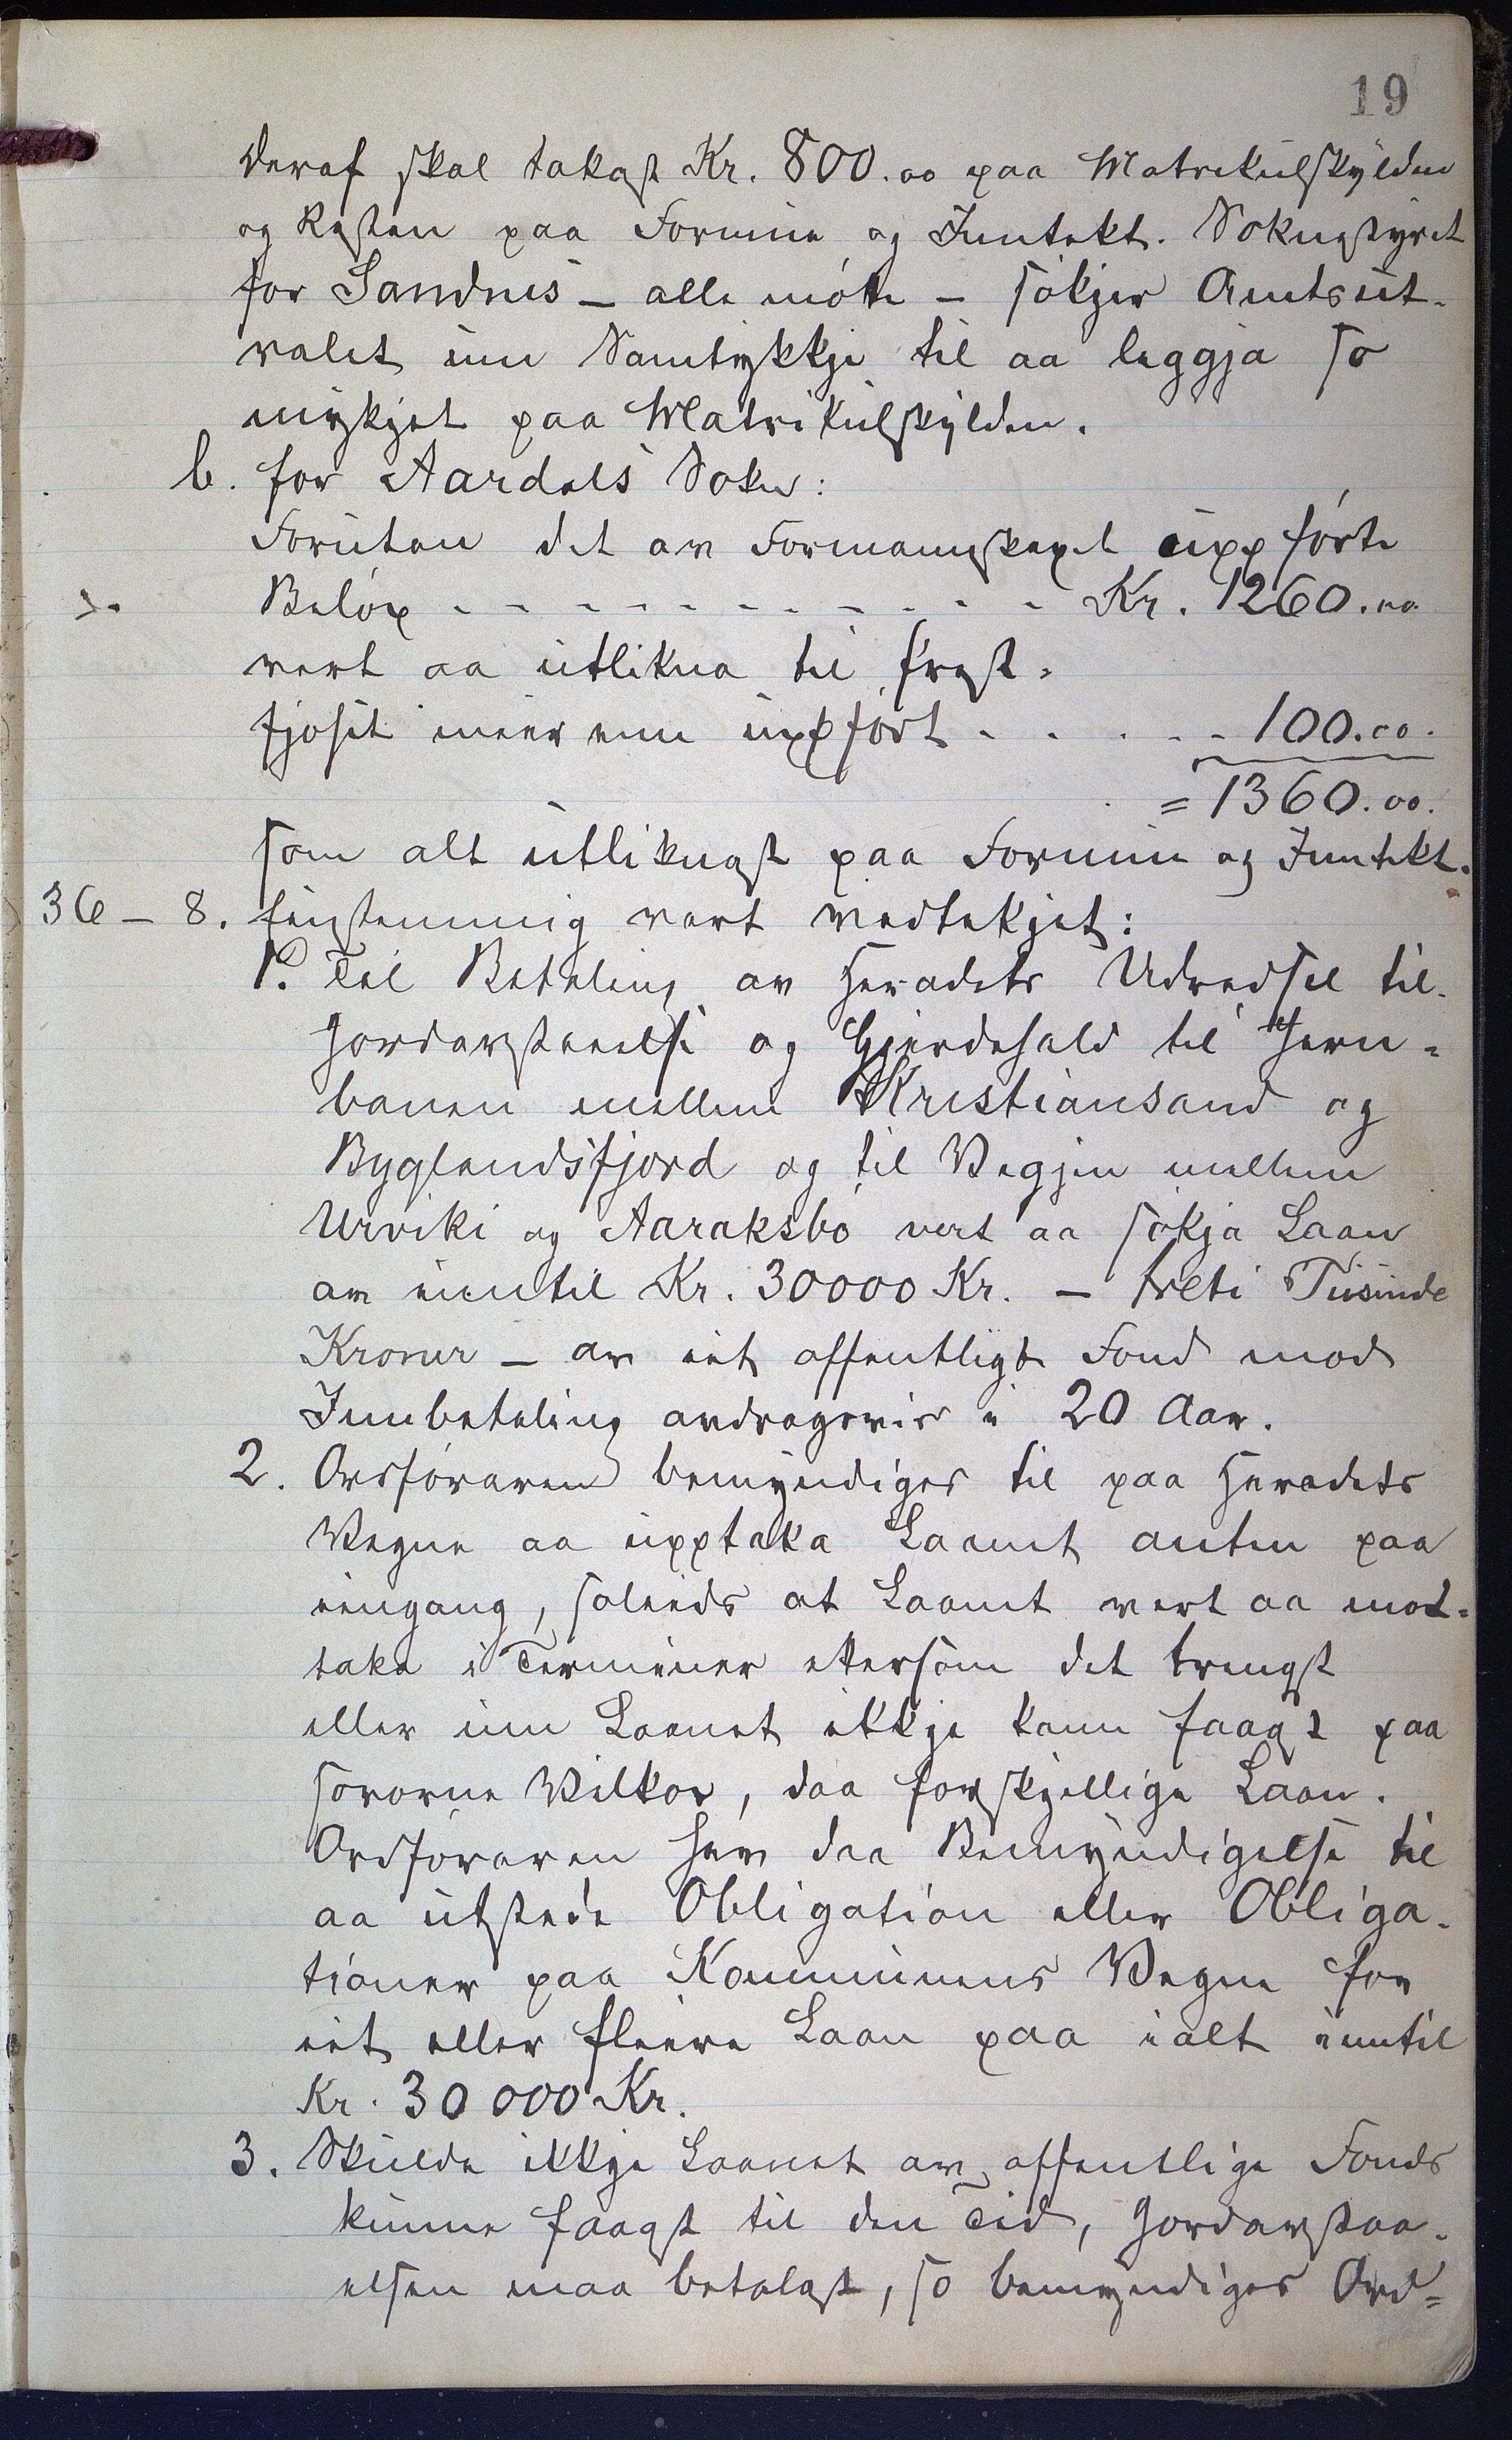 19
deraf skal takast Kr. 800.00 paa Matrikulskylden
og Resten paa Formue og Inntekt. Soknestyret
for Sandnes – alle møtte – søkjer Amtsut-
valet um Samtykkje til aa leggja so
mykjet paa Matrikulskylden.
b. for Aardals Sokn:
Forutan det av Formannskapet uppførte
Beløp - - - - - - - - - - - Kr. 1260.00
vert aa utlikna til
fjoset meir enn uppført - - - - - 100.00.
= 1360.00.
som alt utliknast paa Formue og Inntekt.
36 – 8. Einstemmig vart vedtekjet:
1. Til Betaling av Heradets Udredsel til
Jordavstaaelse og Gjerdehald til Jern-
banen mellem Kristiansand og
Byglandsfjord og til Vegjen mellem
Urviki og Aaraksbø vert aa søkja Laan
av inntil Kr. 30000 Kr. – treti Tusinde
Kronur – av eit offentligt Fond mod
Innbetaling avdragsvis i 20 Aar.
2. Ordføraren bemyndiges til paa Heradets
Vegne aa upptaka Laanet anten paa
eingang, soleids at Laanet vert aa mot-
taka i Terminer ettersom det trengst
eller um Laanet ikkje kann faast paa
sovorne Vilkor, daa forskjellige Laan.
Ordføraren hev daa Bemyndigelse til
aa utstede Obligation eller Obliga-
tioner paa Kommunens Vegne for
eit eller fleire Laan paa ialt inntil
Kr. 30 000 Kr.
3. Skulde ikkje Laanet av offentlige Fonds
kunne faast til den Tid, Jordavstaa-
elsen maa betalast, so bemyndiges Ord=